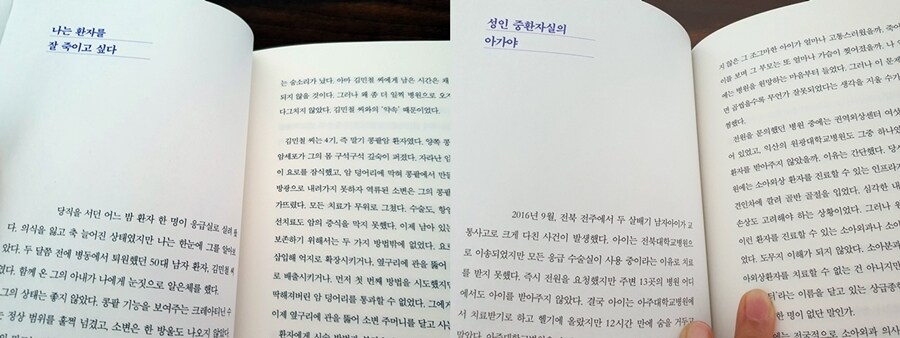 나는 환자를
잘 죽이고 싶다
당직을 서던 어느 밤 환자 한 명이 응급실로 실려
다. 의식을 잃고 축 늘어진 상태였지만 나는 한눈에 그를 알아
았다. 두 달쯤 전에 병동에서 퇴원했던 50대 남자 환자, 김민철 씨
였다. 함께 온 그의 아내가 나에게 눈짓으로 알은체를 했다.
그의 상태는 좋지 않았다. 콩팥 기능을 보여주는 크레아티닌 수
는 정상 범위를 훌쩍 넘겼고, 소변은 한 방울도 나오지 않았다
는 숨소리가 났다. 아마 김민철 씨에게 남은 시간은 채
되지 않을 것이다. 그러나 왜 좀 더 일찍 병원으로 오지
다그치지 않았다. 김민철 씨와의 '약속' 때문이었다.
김민철 씨는 4기, 즉 말기 콩팥암 환자였다. 양쪽 콩
암세포가 그의 몸 구석구석 깊숙이 퍼졌다. 자라난 암
이 요로를 잠식했고, 암 덩어리에 막혀 콩팥에서 만든
방광으로 내려가지 못하자 역류된 소변은 그의 콩팥
가뜨렸다. 모든 치료가 무위로 그쳤다. 수술도, 항암
선치료도 암의 증식을 막지 못했다. 이제 남아 있는
보존하기 위해서는 두 가지 방법밖에 없었다. 요로
삽입해 억지로 확장시키거나, 옆구리에 관을 뚫어
로 배출시키거나. 먼저 첫 번째 방법을 시도했지만
딱해져버린 암 덩어리를 통과할 수 없었다. 그에게
이젠 옆구리에 관을 뚫어 소변 주머니를 달고 사는
환자에게 시술 방법과
성인 중환자실의
아가야
2016년 9월, 전북 전주에서 두 살배기 남자아이가 교
통사고로 크게 다친 사건이 발생했다. 아이는 전북대학교병원으
로 이송되었지만 모든 응급 수술실이 사용 중이라는 이유로 치료
를 받지 못했다. 즉시 전원을 요청했지만 주변 13곳의 병원 어디
에서도 아이를 받아주지 않았다. 결국 아이는 아주대학교병원에
서 치료받기로 하고 헬기에 올랐지만 12시간 만에 숨을 거두고
말았다. 아주대학교병원
지 않은 그 조그마한 아이가 얼마나 고통스러웠을까. 죽어
이를 보며 그 부모는 또 얼마나 가슴이 찢어졌을까. 나
에는 병원을 원망하는 마음부터 들었다. 그러나 이 문제
면 곱씹을수록 무언가 잘못되었다는 생각을 지울 수가
웠했다.
전원을 문의했던 병원 중에는 권역외상센터 여섯
어 있었고, 익산의 원광대학교병원도 그중 하나였
환자를 받아주지 않았을까. 이유는 간단했다. 당시
원에는 소아외상 환자를 진료할 수 있는 인프라가
견인차에 깔려 골반 골절을 입었다. 심각한 내
손상도 고려해야 하는 상황이었다. 그러나 원
이런 환자를 진료할 수 있는 소아외과나 소아
다. 도무지 이해가 되지 않았다. 소아분과
아외상환자를 치료할 수 없는 건 아니지만
터'라는 이름을 달고 있는 상급종합
한 명이 없단 말인가.
에는 전국적으로 소아외과 의사